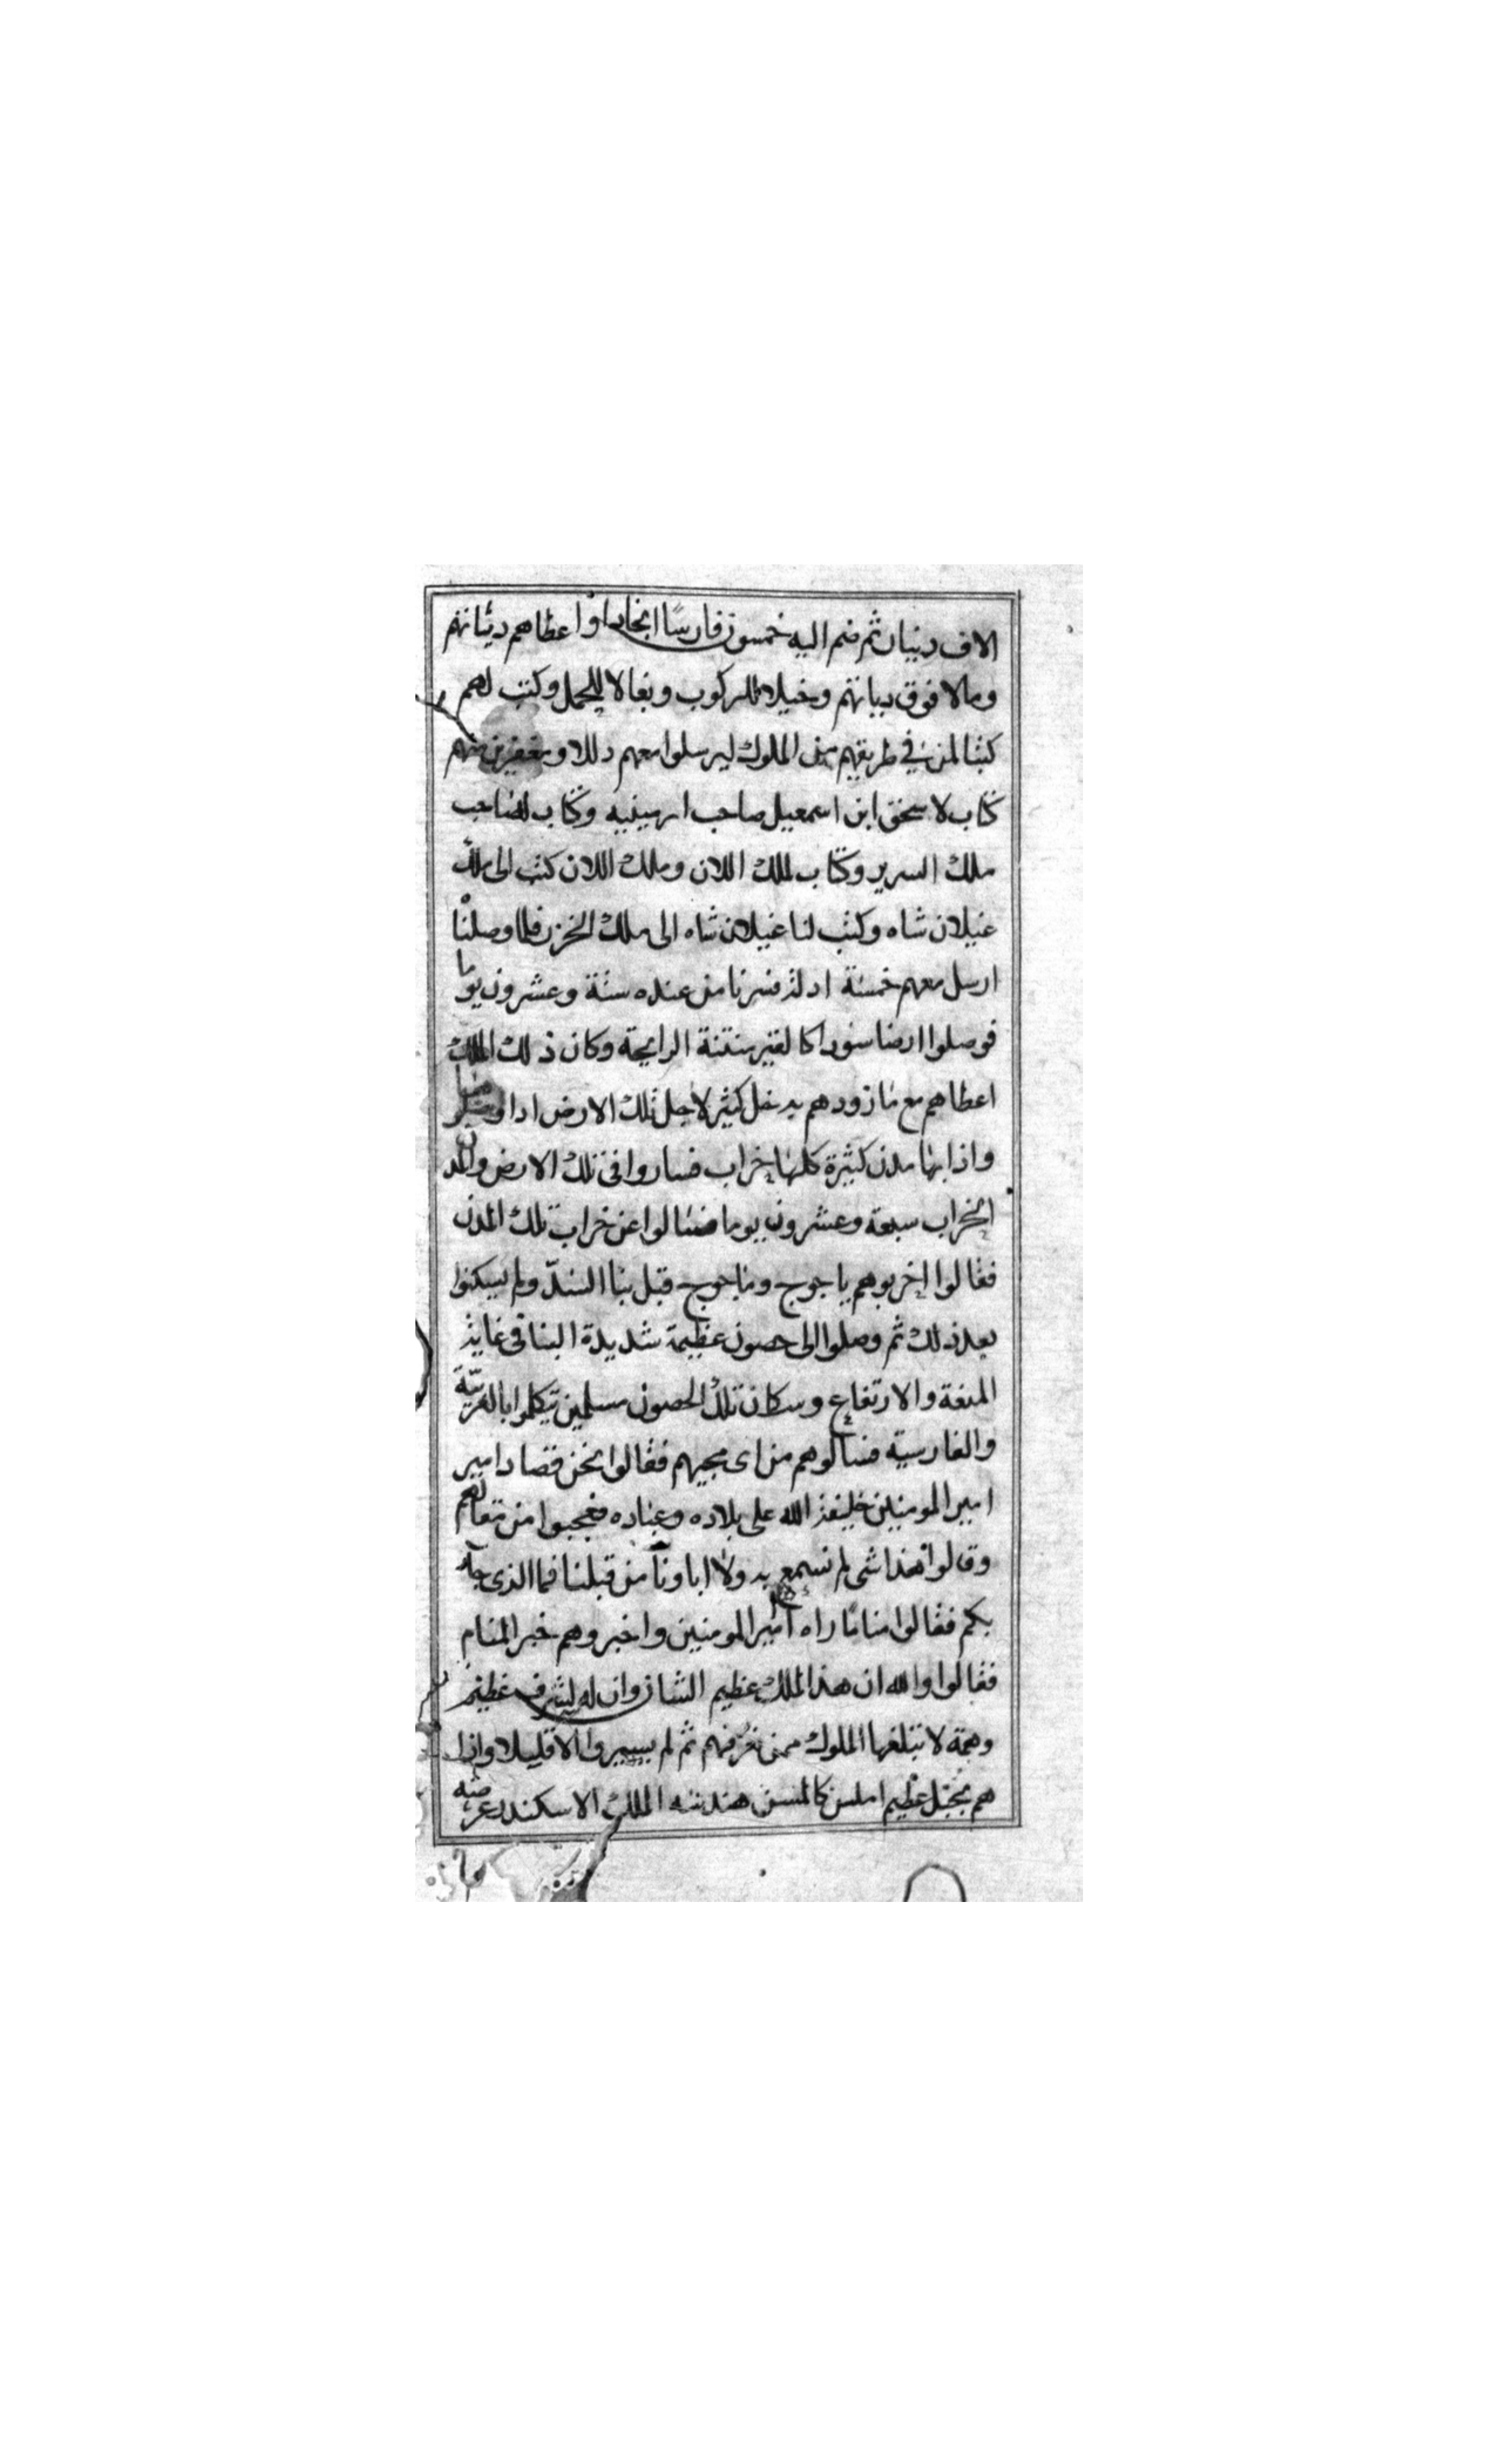 الاف دينار ثم ضم اليه خمسون فارسًا انجادا واعطاهم دياتهم
ومالا فوق دياتهم وخيلا للركوب وبغالا للحمل وكتب لهم
كتبا لمن في طريقهم من الملوك ليرسلوا معهم دللا
كتاب لاسحق ابن اسمعيل صاحب ارمينيه وكتاب لصاحب
ملك السرير وكتاب لملك اللان وملك اللان كتب الى ملك
غيلان شاه وكتب لنا غيلان شاه الى ملك الخزر فلما وصلنا
ارسل معهم خمسة ادلة فسرنا من عنده ستة وعشرون يوما
فوصلوا ارضا سودا كالقير منتنة الرايحة وكان ذلك الملك
اعطاهم مع ما زودهم به خل كثير لاجل تلك الارض
واذا بها مدن كثيرة كلها خراب فساروا في تلك الارض والمدن
الخراب سبعة وعشرون يوما فسالوا عن خراب تلك المدن
فقالوا اخربوهم ياجوج وماجوج قبل بنا السدّ ولم يسكنوا
بعد ذلك ثم وصلوا الى حصون عظيمة شديدة البنا في غاية
المنعة والارتفاع وسكان تلك الحصون مسلمين تيكلموا بالعربيّة
والفارسية فسالوهم من اى مجيهم فقالوا نحن قصاد امير
امير المومنين خليفة الله على بلاده وعباده فعجبوا من مقالهم
وقالوا هذا شى لم نسمع به ولا اباونا من قبلنا فما الذى جآ
بكم فقالوا مناما راه امير المومنين واخبروهم خبر المنام
فقالوا والله ان هذا الملك عظيم الشان وان له لشرف عظيم
وهمة لا تبلغها الملوك ممن نعرفهم ثم لم يسيروا الا قليلا واذا
هم بجبل عظيم املس كالمسن هندسه الملك الاسكندر عرضه